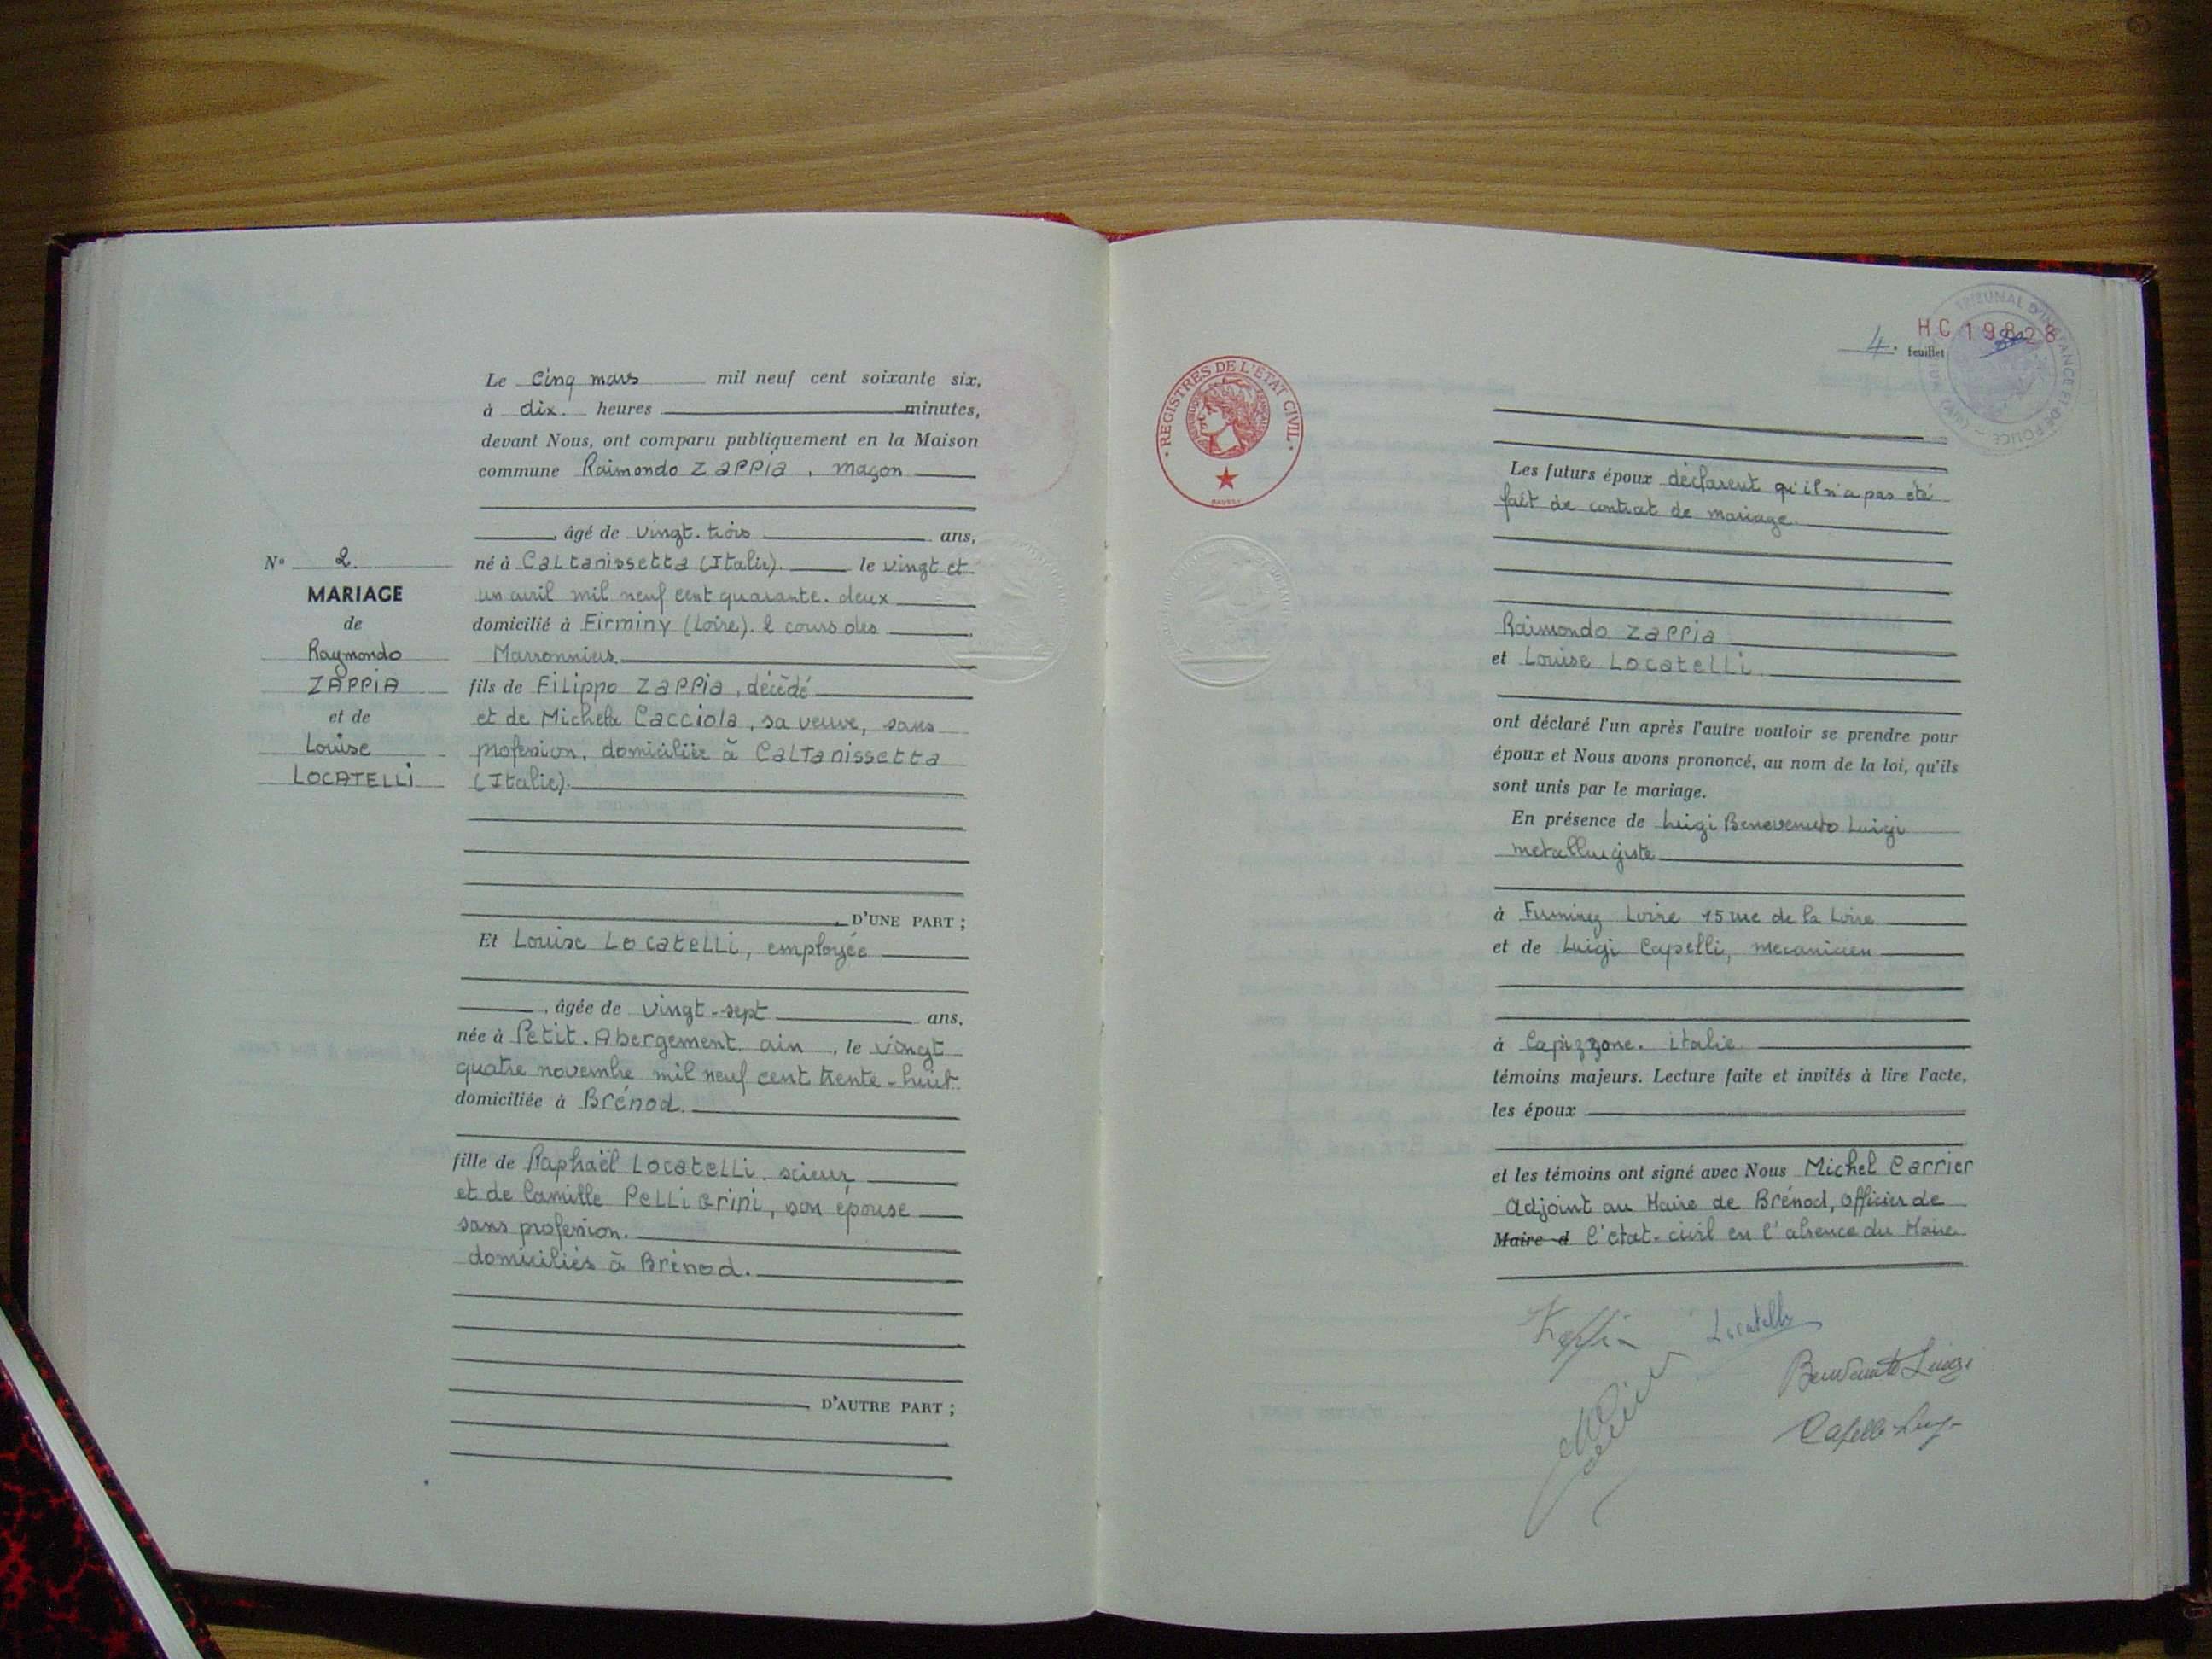 Le Cinq mars mil neuf cent soixante six,
à dix. heures minutes,
devant Nous, ont comparu publiquement en la Maison
commune Raimondo ZAPPIA, maçon
, âgé de vingt-trois ans,
né à Caltanissetta (Italie). le vingt et
un avril mil neuf cent quarante-deux
domicilié à Firminy (Loire). 2 cours des
Marronniers
fils de Filippo Zappia, décédé
et de Michela Cacciola, sa veuve, sans
profession, domiciliée à Caltanissetta
(Italie).
D'UNE PART ;
N° 2
MARIAGE
de
Raymondo
ZAPPIA
et de
Louise
LOCATELLI
Et Louise Locatelli, employée
, âgée de vingt-sept ans,
née à Petit-Abergement. ain, le vingt
quatre novembre mil neuf cent trente-huit
domiciliée à Brénod.
fille de Raphaël Locatelli. scieur
et de Camille Pelligrini, son épouse
sans profession.
domiciliés à Brénod.
D'AUTRE PART ;
REGISTRES DE L'ÉTAT CIVIL
4. feuillet
HC 19828
TRIBUNAL D'INSTANCE ET DE POLICE
Les futurs époux déclarent qu'il n'a pas été
fait de contrat de mariage.
Raimondo Zappia
et Louise Locatelli
ont déclaré l'un après l'autre vouloir se prendre pour
époux et Nous avons prononcé, au nom de la loi, qu'ils
sont unis par le mariage.
En présence de Luigi Benevenuto Luigi
metallurgiste
à Firminy Loire 15 rue de la Loire
et de Luigi Capelli, mecanicien
à Capizzone. italie
témoins majeurs. Lecture faite et invités à lire l'acte,
les époux
et les témoins ont signé avec Nous Michel Carrier
Adjoint au Maire de Brénod, officier de
Maire d l'état-civil en l'absence du Maire
Zappia
Locatelli
Benvenuto Luigi